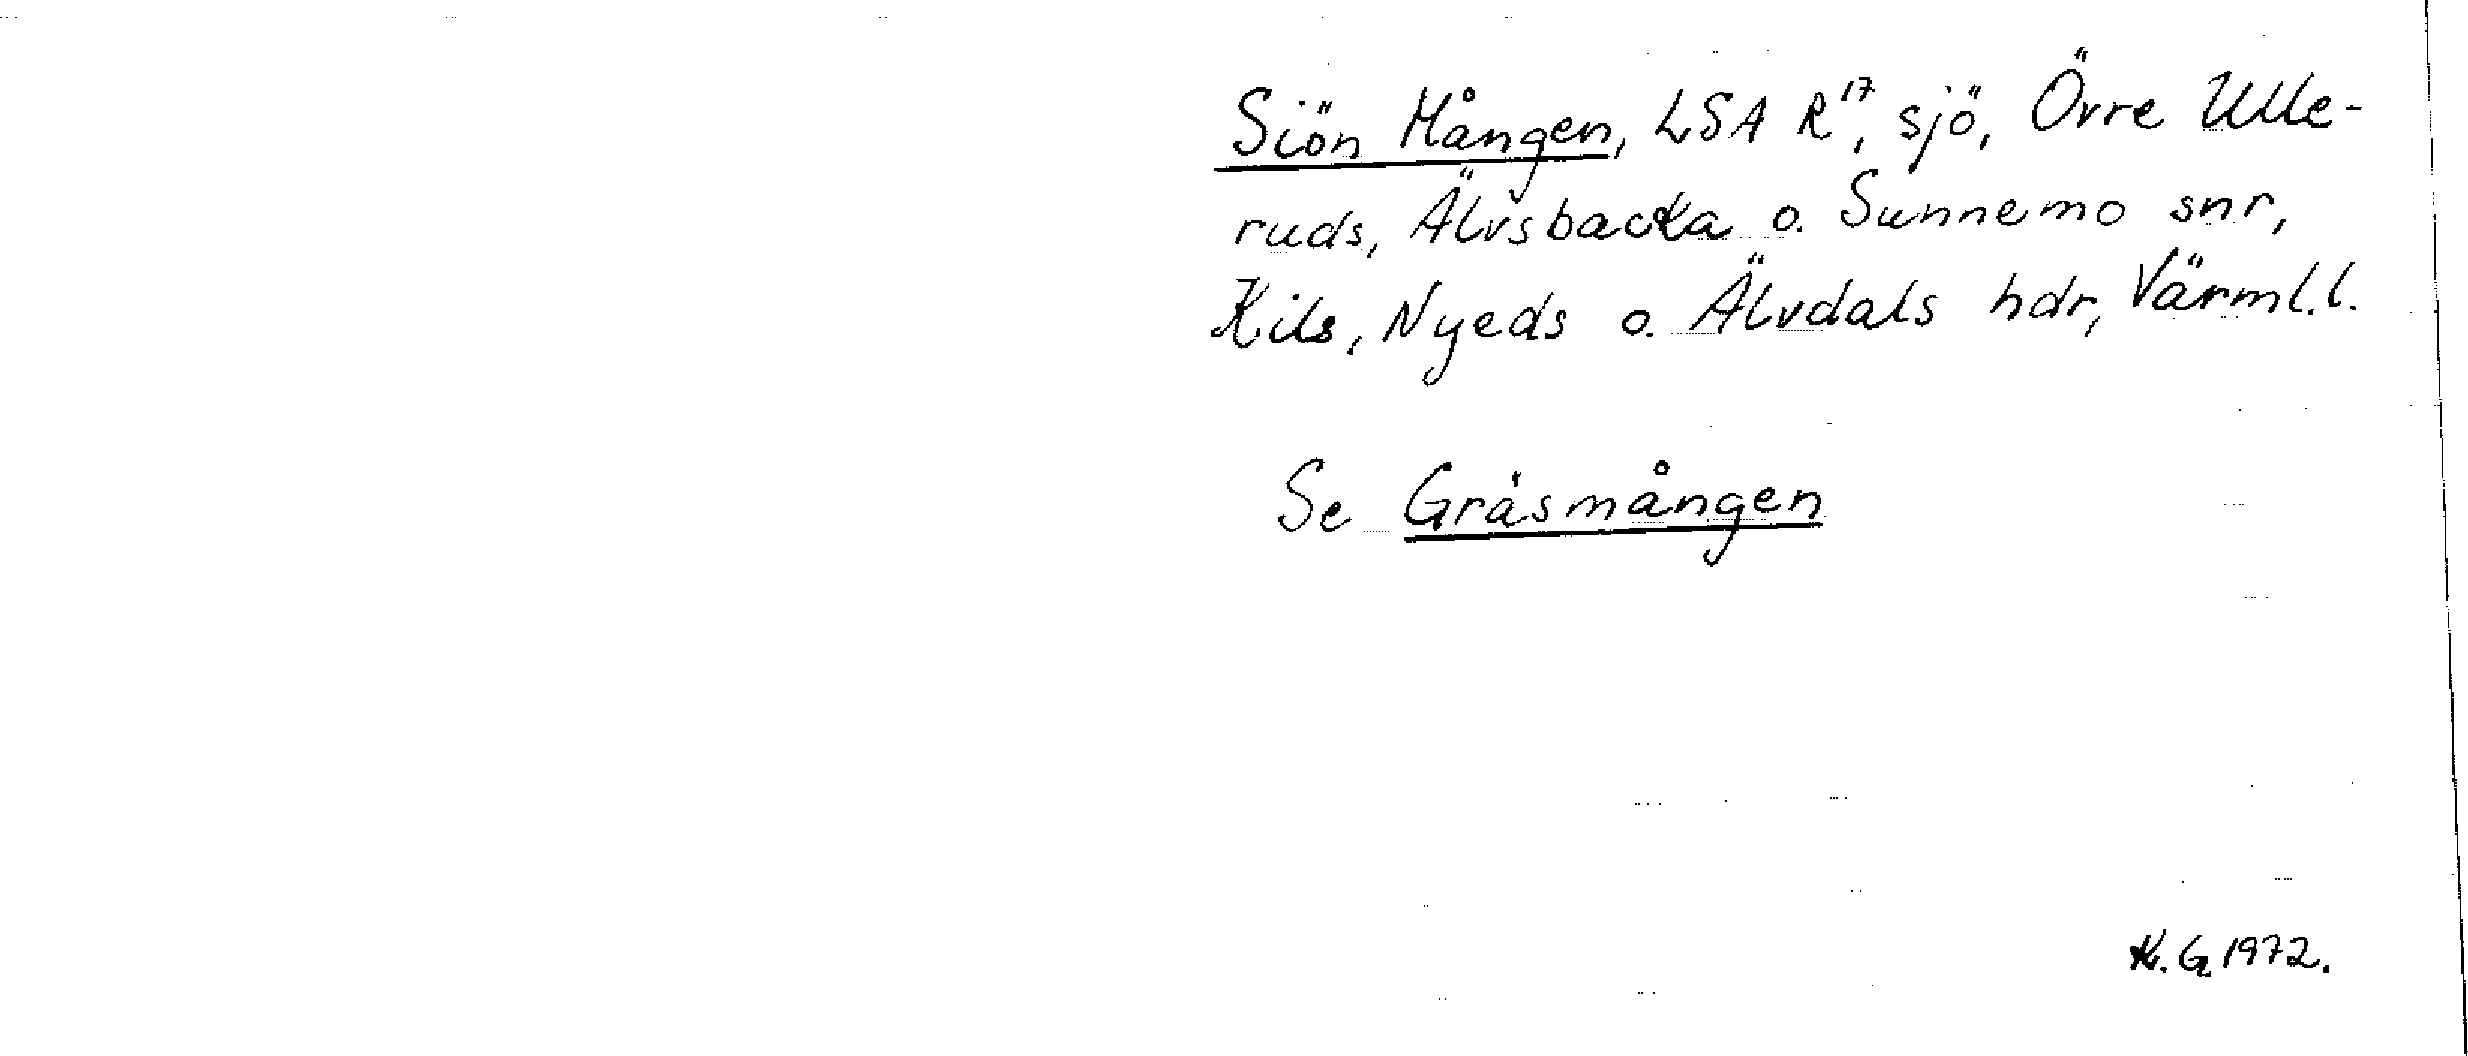 Siön Mången, LSA R¹⁷, sjö, Övre Ulle-
ruds, Älvsbacka o. Sunnemo snr,
Kils, Nyeds o. Älvdals hdr, Värml. l.
Se Gräsmången
K. G 1972.